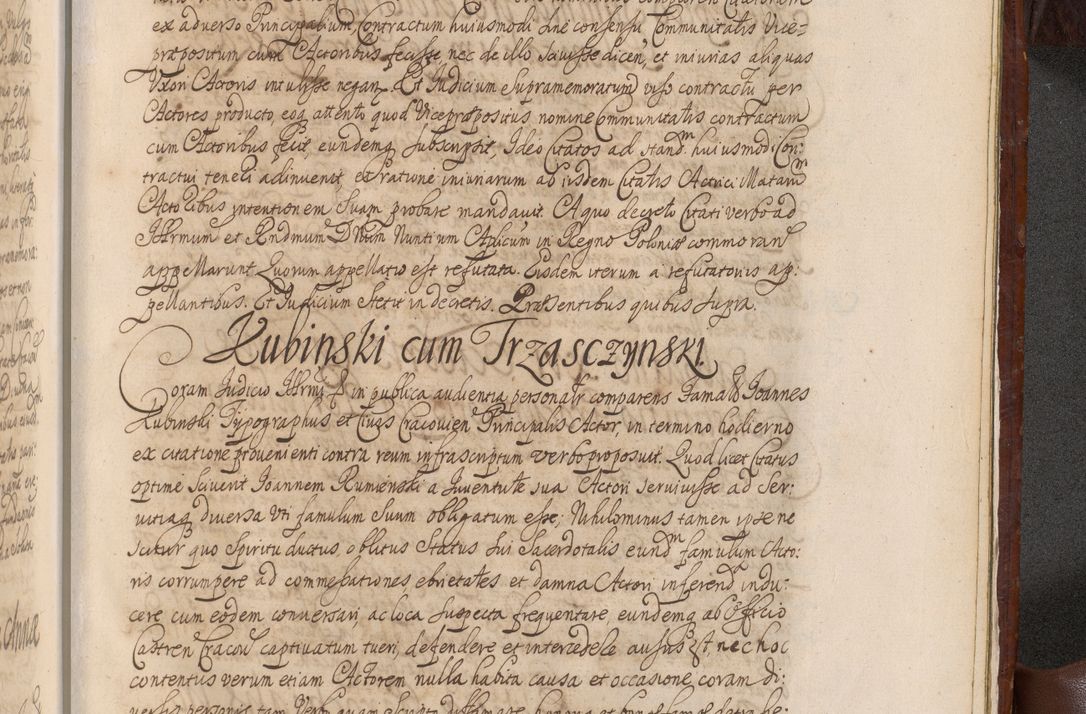 ex adverso Principalium, Contractum huiusmodi sine consensu Communitatis Vice-
præpositum cum Actoribus fecisse, nec de illo scivisse dicen, et iniurias aliquas
Uxori Actoris intulisse negan. Et Iudicium supramemoratum viso contractu per
Actores producto, eoq attento quod Vicepræpositus nomine Communitatis contractum
cum Actoribus fecit, eundemq subscripsit, Ideo Citatos ad stand huiusmodi Con:
tractui teneri adinvenit, et ratione iniuriarum ab iisdem Citatis Actrici Matam
Actoribus intentionem suam probare mandavit. A quo decreto Citati verbo ad
Illrmum et Rndmum D Num Nuntium Aplicum in Regno Poloniæ commoran
appellarunt. Quorum appellatio est refutata. Eisdem iterum a refutatoriis ap:
pellantibus. Et Iudicium stetit in decretis. Præsentibus quibus supra.
Kubinski cum Trzasczynski
Coram Iudicio Ibrnj & in publica audientia personalr comparens Famats Ioannes
Kubinski Typographus et Civis Cracovien Principalis Actor, in termino hodierno
ex citatione provenienti contra reum infrascriptum verbo proposuit. Quod licet Citatus
optime sciverit Ioannem Rumienski a Iuventute sua Actori servivisse ad ser:
vitiaq diversa uti famulum suum obligatum esse; Nihilominus tamen ipse ne
scitur quo spiritu ductus, oblitus status sui Sacerdotalis eundm famulum Acto:
ris corrumpere ad commessationes ebrietates et damna Actori inferend indu:
cere cum eodem conversari, ac loca suspecta frequentare, eundemq ab Officio
Castren Cracov captivatum tueri, defendere et intercedere ausus est, nec hoc
contentus verum etiam Actorem nulla habita causa et occasione, coram di:
versis personis tam verbo quam scripto